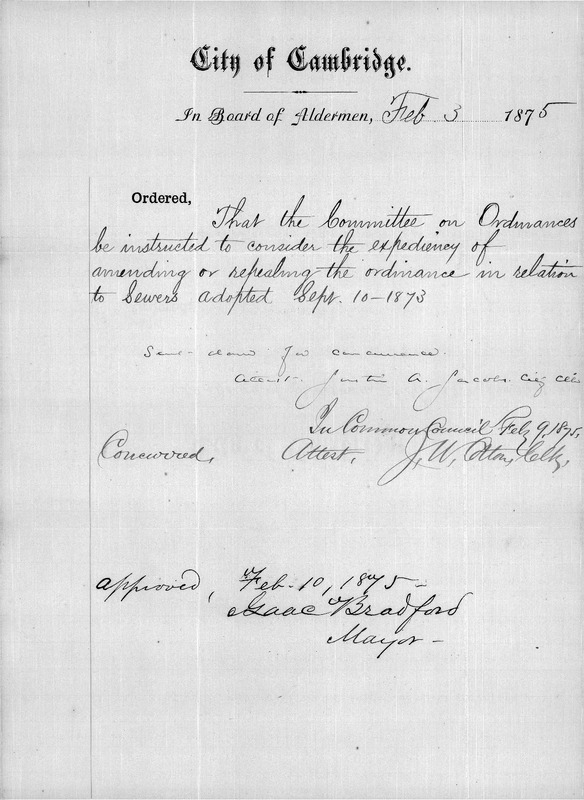 City of Cambridge.
In Board of Aldermen, Feb 3 1875
Ordered,
That the Committee on Ordinances
be instructed to consider the expediency of
amending or repealing the ordinance in relation
to Sewers adopted Sept. 10-1873
Sent down for concurrence.
Attest. Justin A. Jacobs. City Clk
In Common Council Feb, 9, 1875,
Concurred, Attest, J. W. Cotton, Clk,
approved, Feb. 10, 1875-
Isaac Bradford
Mayor-